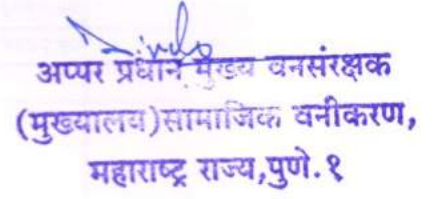 अप्पर प्रधान मुख्य वनसंरक्षक
(मुख्यालय)सामाजिक वनीकरण,
महाराष्ट्र राज्य,पुणे.१